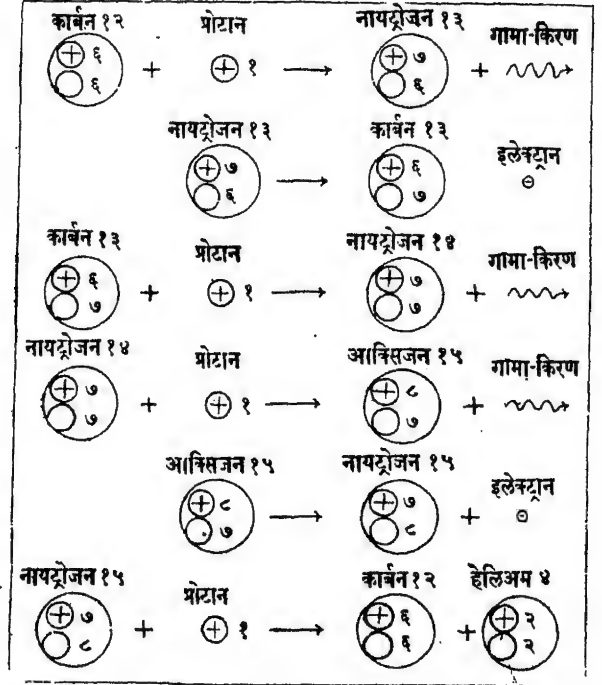 कार्बन १२ प्रोटान नायट्रोजन १३ गामा-किरण
६ + १ ⟶ ७ +
६ ६
नायट्रोजन १३ कार्बन १३ इलेक्ट्रान
७ ⟶ ६
६ ७
कार्बन १३ प्रोटान नायट्रोजन १४ गामा-किरण
६ + १ ⟶ ७ +
७ ७
नायट्रोजन १४ प्रोटान आक्सिजन १५ गामा-किरण
७ + १ ⟶ ८ +
७ ७
आक्सिजन १५ नायट्रोजन १५ इलेक्ट्रान
८ ⟶ ७ +
७ ८
नायट्रोजन १५ प्रोटान कार्बन १२ हेलिअम ४
७ + १ ⟶ ६ + २
८ ६ २